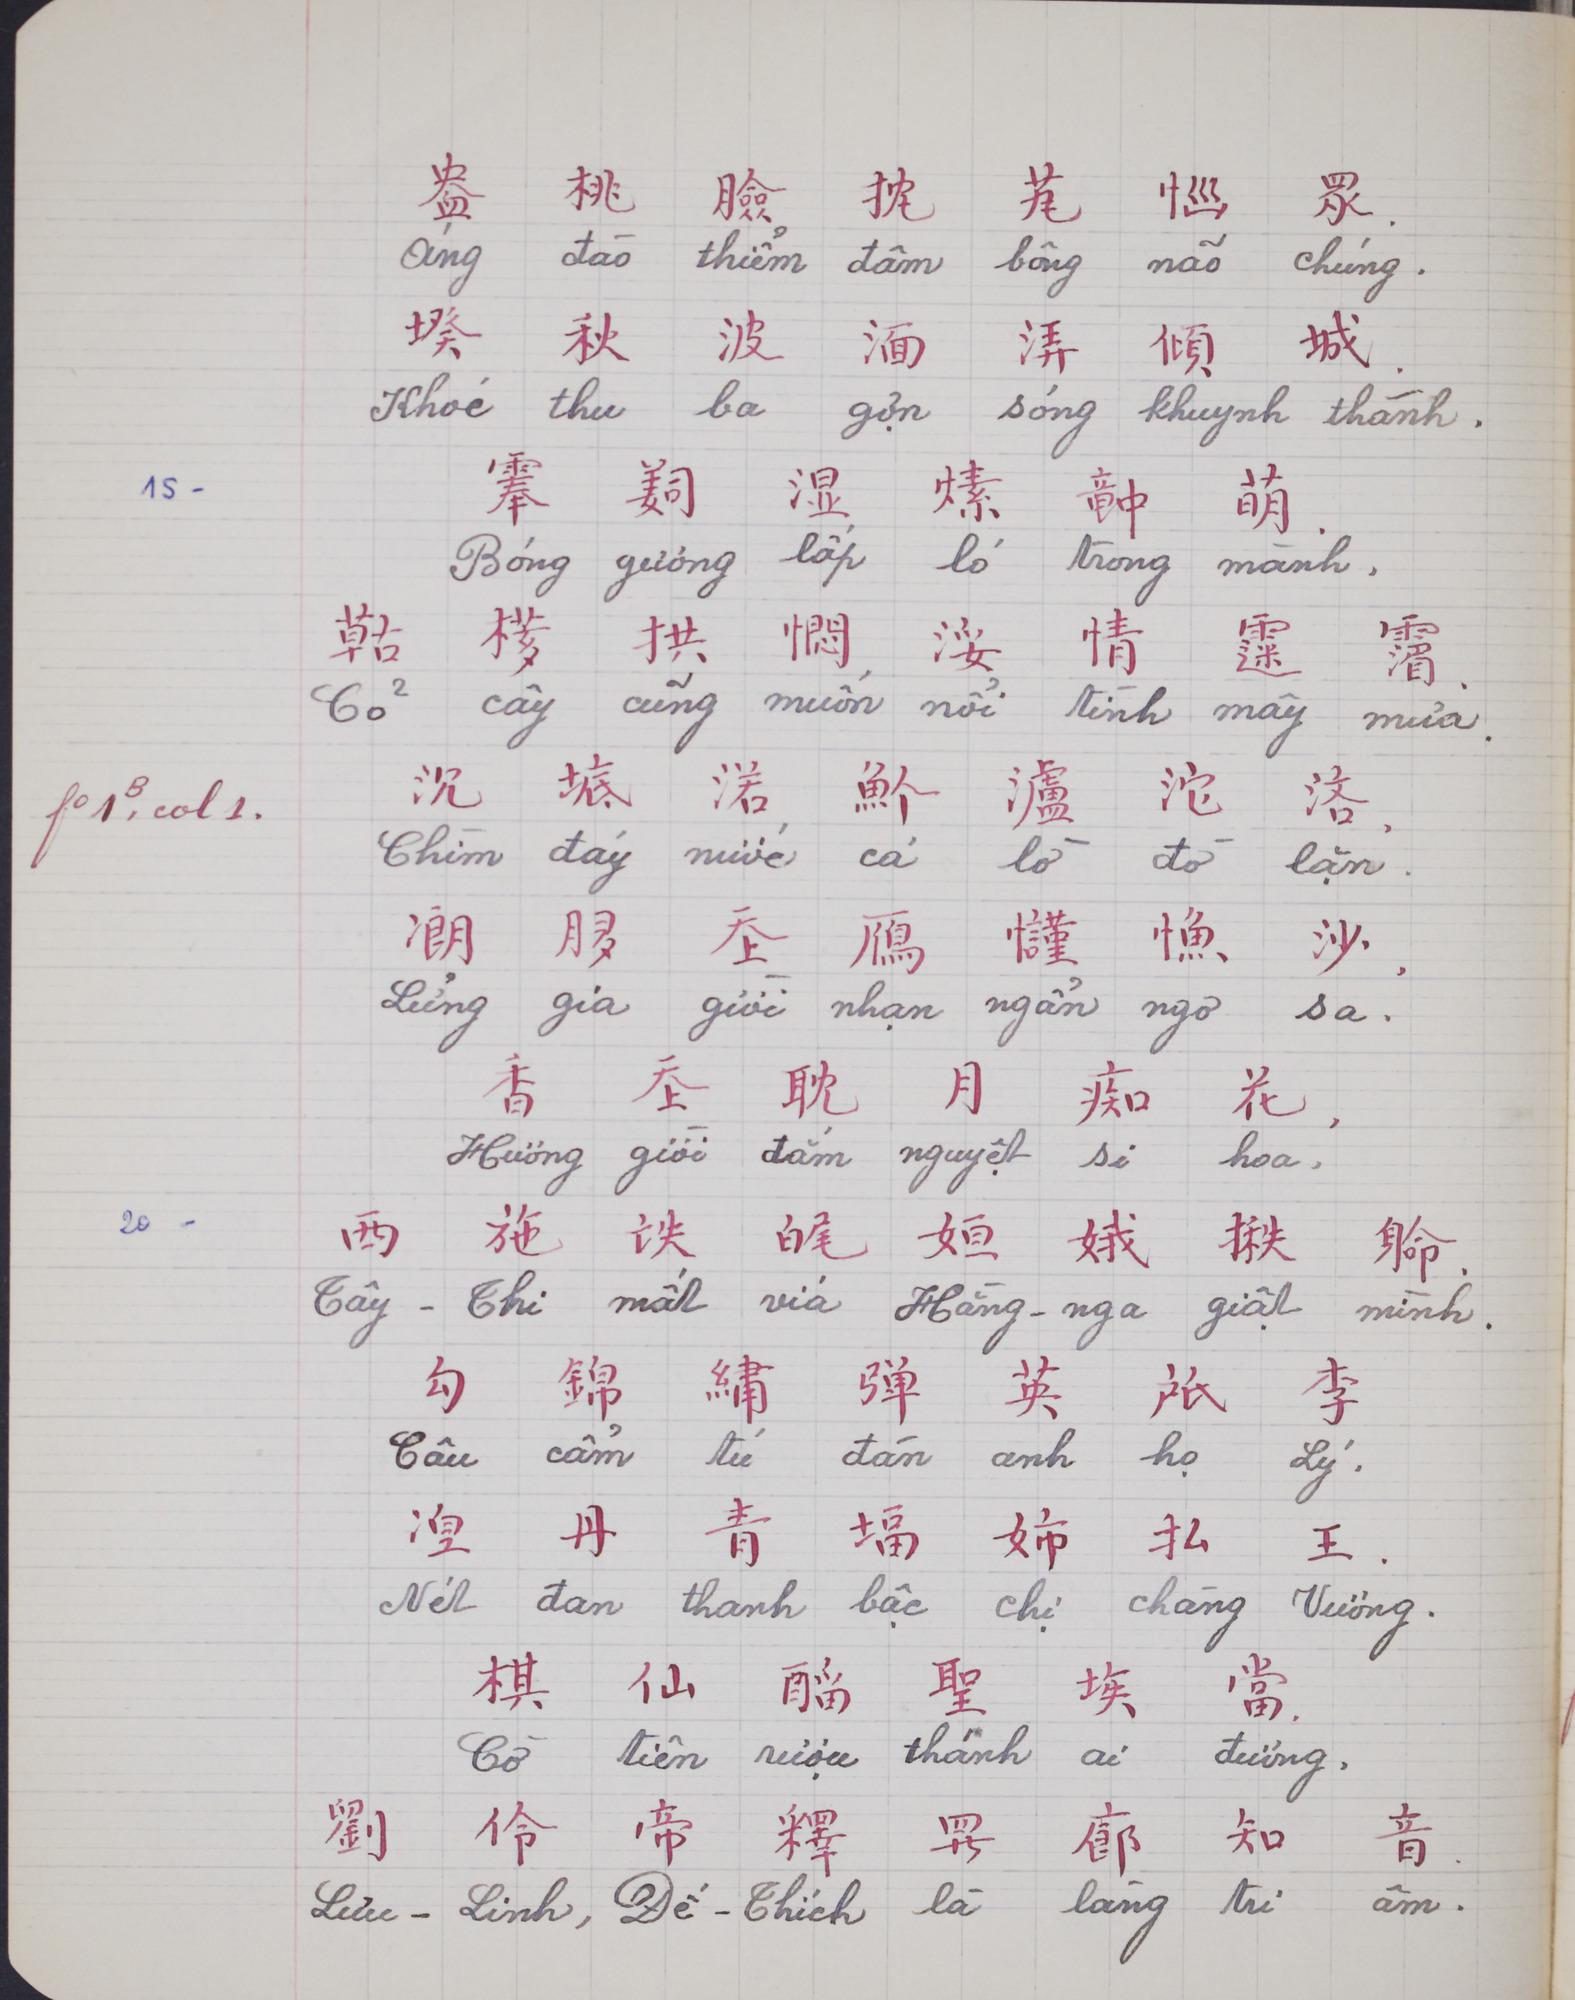 盎 桃 臉 扰 芼 惱 眾.
Áng đào thiểm đâm bông não chúng.
秋 波 湎 傾 城.
Khoé thu ba gợn sóng khuynh thành.
15-
湿 萌.
Bóng gương lấp ló trong mành.
拱 憫 浽 情.
Cỏ cây cũng muốn nổi tình mây mưa.
fo 1B, col 1.
沉 渃 瀘 沱 洛,
Chìm đáy nước cá lờ đờ lặn.
雁 沙,
Lửng gia giời nhạn ngẩn ngơ sa.
香 𡗶 耽 月 痴 花,
Hương giời đắm nguyệt si hoa.
20 -
西 施 姮 娥.
Tây - Thi mất viá Hằng - nga giật mình.
勾 錦 繡 弹 英 李
Câu cẩm tú đán anh họ Lý.
涅 丹 青 堛 姉 払 王.
Nét đan thanh bậc chị chàng Vương.
棋 仙 聖 埃 當.
Cờ tiên rượu thánh ai đương.
劉 伶 帝 釋 廊 知 音.
Lưu - Linh, Đế - Thích là làng tri âm.